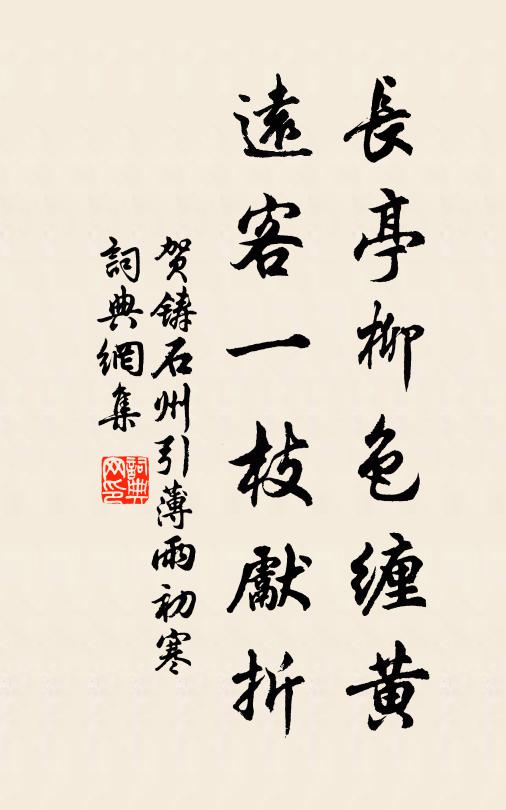 長亭柳色纏黄
遠客一枝獻折
贺鑄石州引薄雨初寒
詞典網集
詞典网印